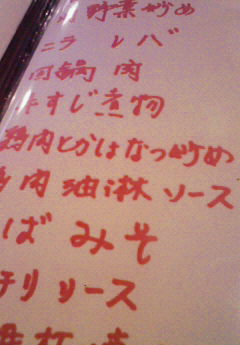 野菜炒め
ニラ レバ
回鍋肉
すじ煮物
鶏肉とかはなっ炒め
肉油淋ソース
ばみそ
チリソース